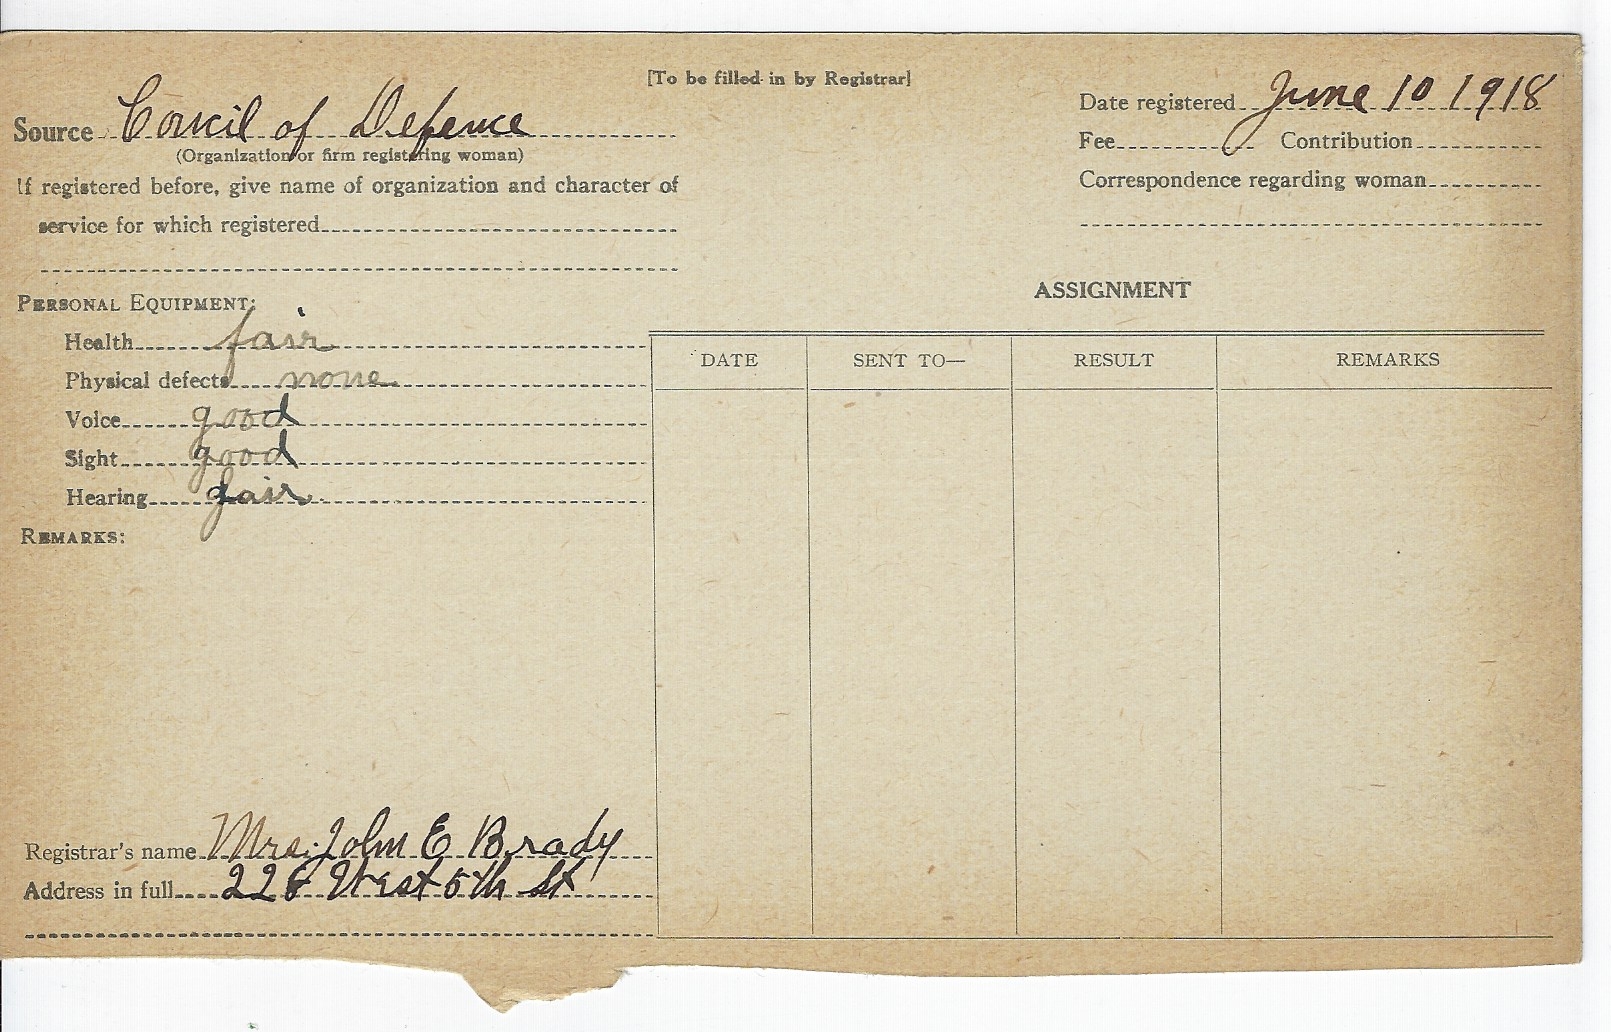 [To be filled in by Registrar]
Source Councel of Defence
(Organization or firm registering woman)
If registered before, give name of organization and character of
service for which registered
Date registered June 10 1918
Fee Contribution
Correspondence regarding woman
PERSONAL EQUIPMENT:
Health fair
Physical defects none
Voice good
Sight good
Hearing fair
REMARKS:
ASSIGNMENT
DATE SENT TO— RESULT REMARKS
Registrar's name Mrs. John E Brady
Address in full West 5th St